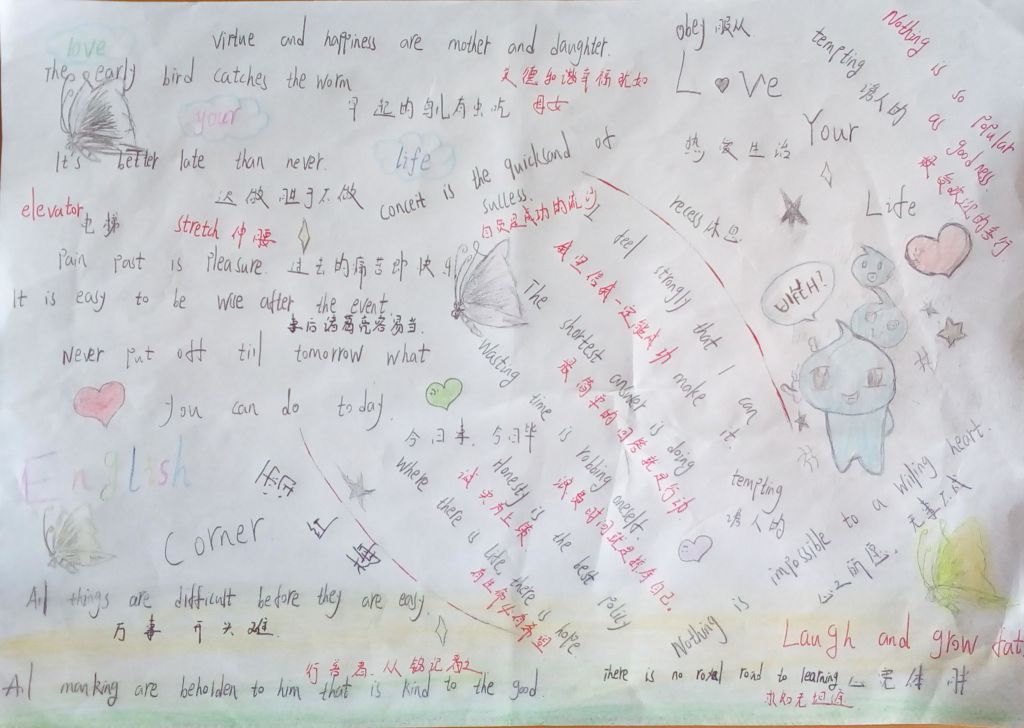 love
your
life
virtue and happiness are mother and daughter.
文德和谐幸福犹如
母女
The early bird catches the worm
早起的鸟儿有虫吃
It's better late than never.
迟做胜于不做
concert is the quicksand of
success.
自负是成功的流沙
elevator 电梯
stretch 伸腰
Pain past is pleasure. 过去的痛苦即快乐
It is easy to be wise after the event.
事后诸葛亮容易当.
Never put off til tomorrow what
you can do today.
今日事. 今日毕
English
Corner
All things are difficult before they are easy.
万事开头难.
行善者. 从铭记
All manking are beholden to him that is kind to the good.
obey 服从
Love
Your
Life
热爱生活
recess 休息
tempting
诱人的
Nothing is so popular as goodness.
I feel strongly that I can make it.
我坚信我一定能成功
The shortest answer is doing
最简单的回答就是行动.
Wasting time is robbing oneself.
浪费时间就是掠夺自己.
Honesty is the best policy
诚实为上策.
Where there is life, there is hope
有生命必有希望
tempting
诱人的
Nothing is impossible to a willing heart.
心之所愿. 无事不成
Laugh and grow fat
心宽体胖
There is no royal road to learning
求知无坦途